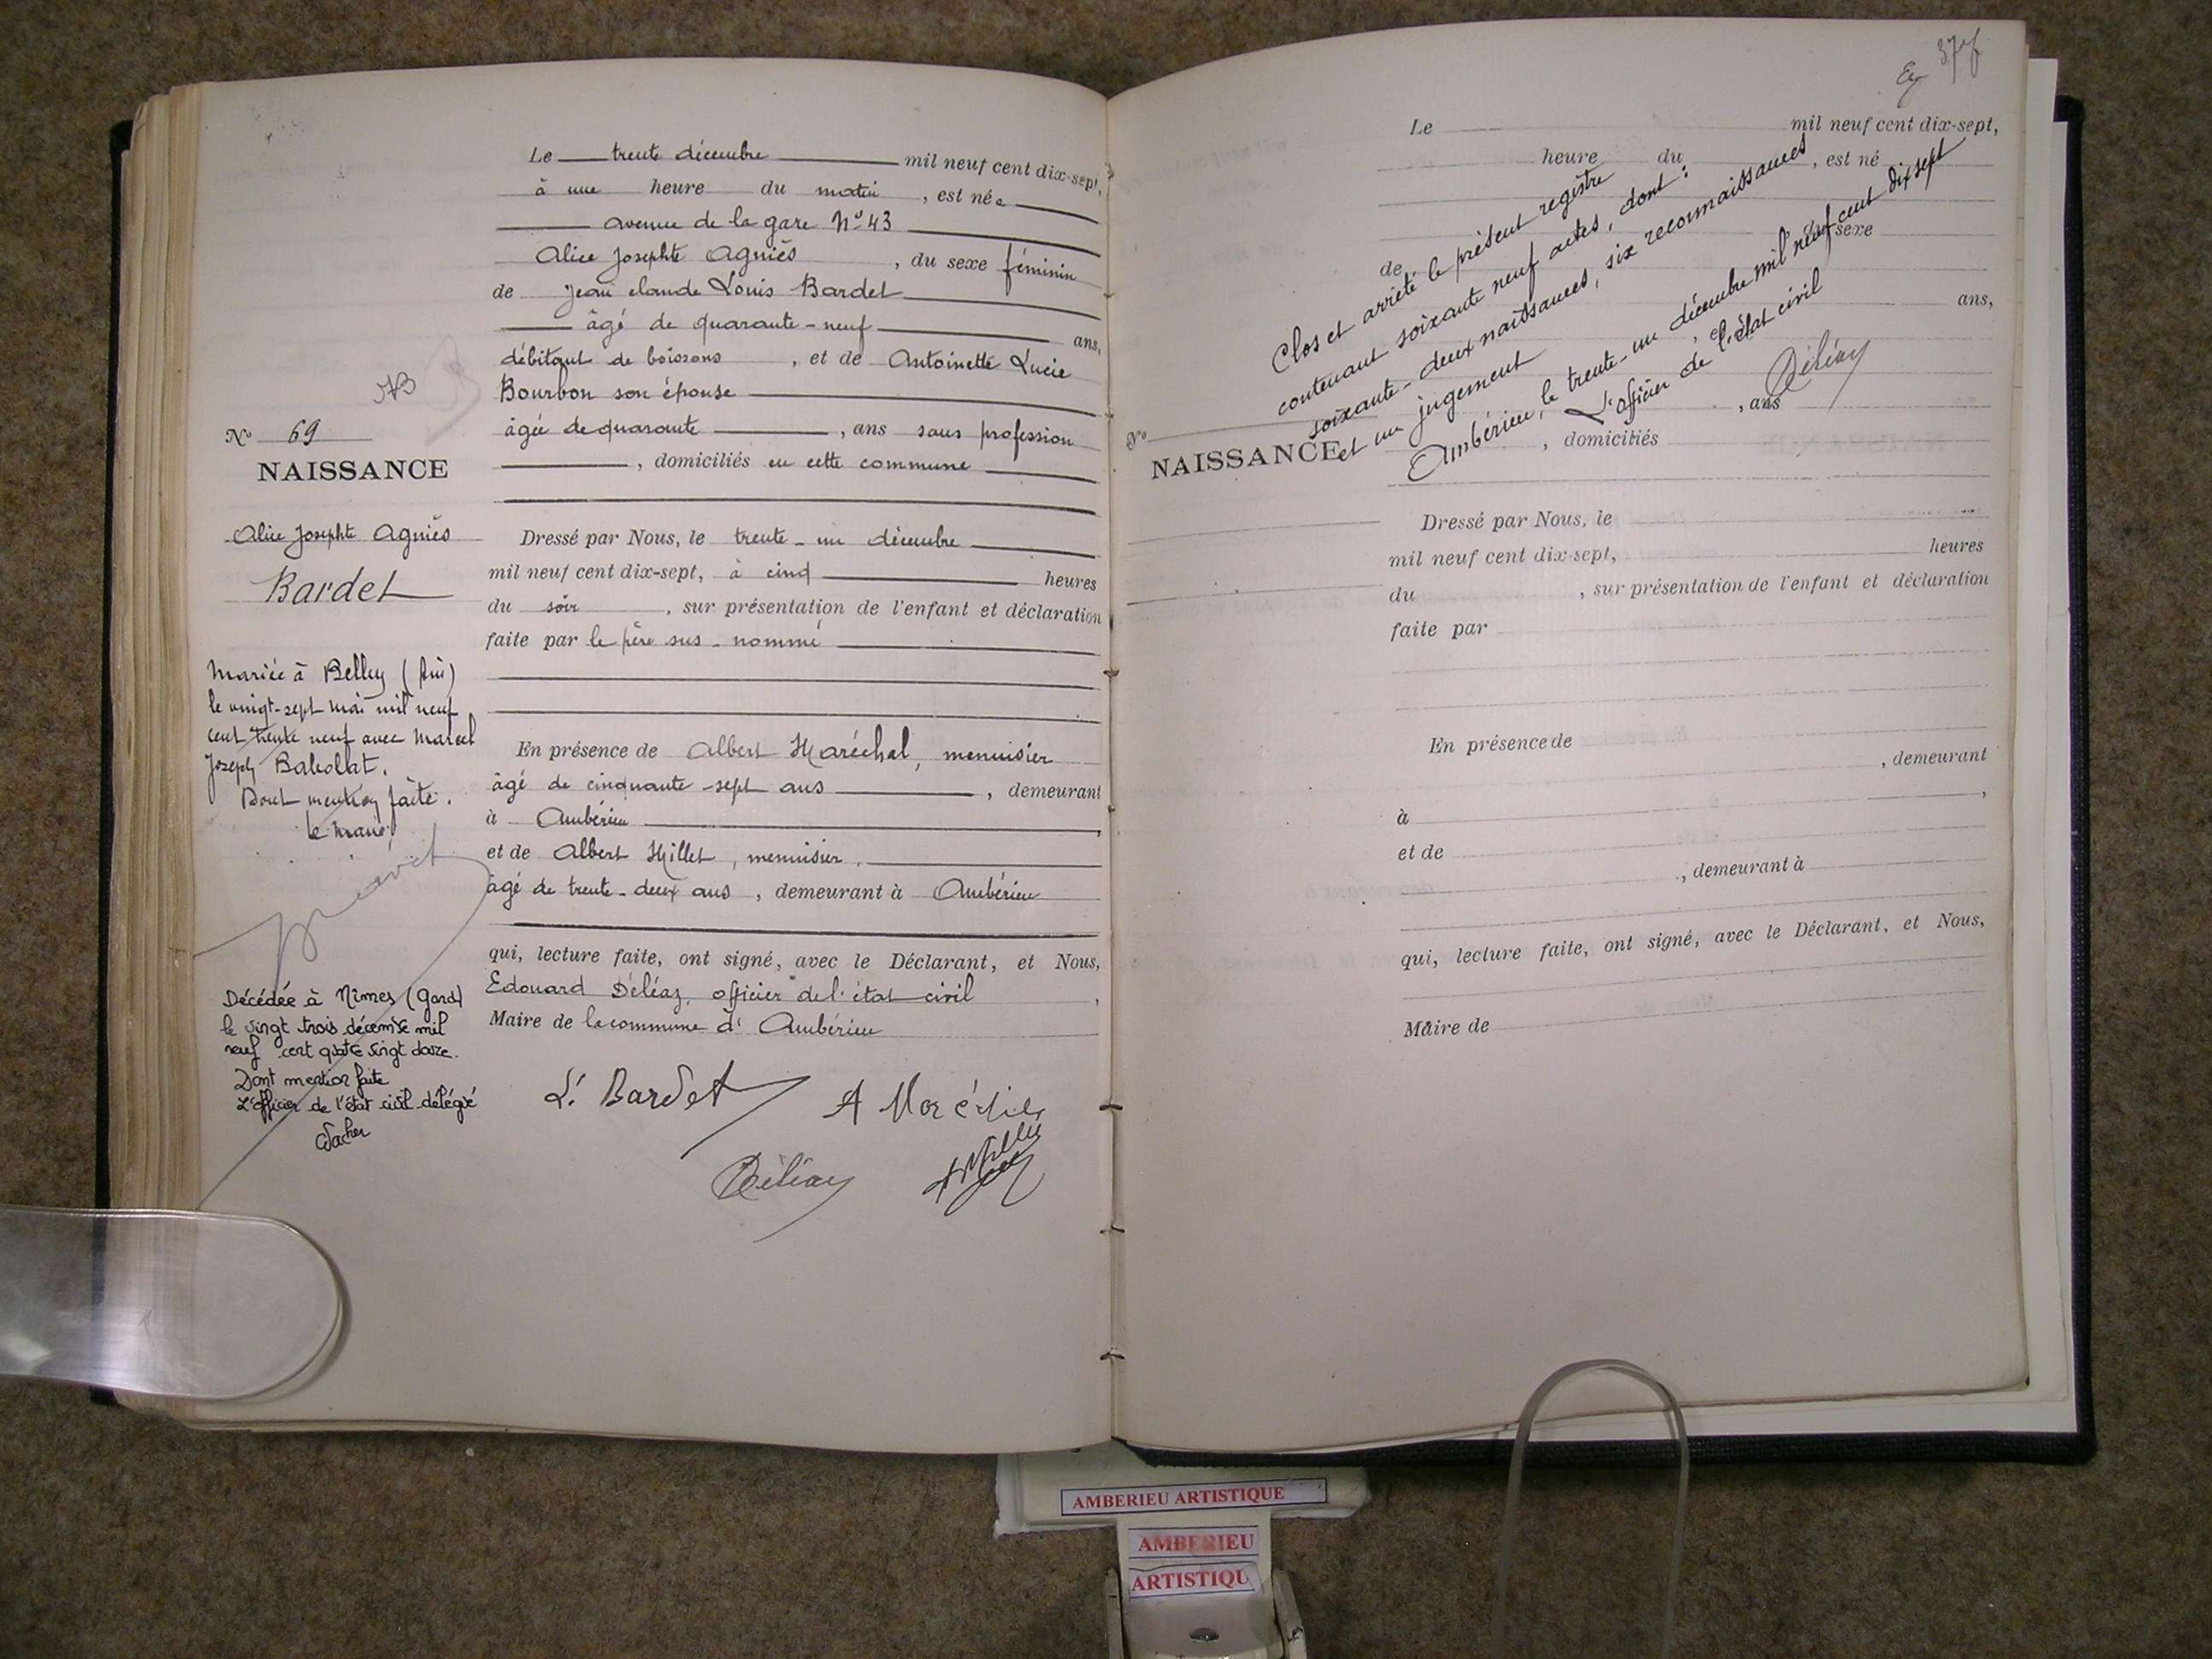 Le trente décembre mil neuf cent dix-sept,
à une heure du matin, est née
avenue de la gare No 43
Alice Josephte Agnès, du sexe féminin
de Jean claude Louis Bardet
âgé de quarante-neuf ans,
débitant de boissons, et de Antoinette Lucie
Bourbon son épouse
âgée de quarante, ans sans profession
, domiciliés en cette commune
No 69
NAISSANCE
Alice Josephte Agnès
Bardet
Dressé par Nous, le trente-un décembre
mil neuf cent dix-sept, à cinq heures
du soir, sur présentation de l'enfant et déclaration
faite par le père sus-nommé
En présence de Albert Maréchal, menuisier
âgé de cinquante-sept ans, demeurant
à Ambérieu,
et de Albert Millet, menuisier,
âgé de trente-deux ans, demeurant à Ambérieu
qui, lecture faite, ont signé, avec le Déclarant, et Nous,
Edouard Déléaz, officier de l'état civil,
Maire de la commune d'Ambérieu
L. Bardet
A Maréchal
Déléaz
A Millet
Mariée à Belley (Ain)
le vingt-sept mai mil neuf
cent trente neuf avec Marcel
Joseph
Dont mention faite.
le Maire,
Décédée à Nîmes (Gard)
le vingt trois décembre mil
neuf cent quatre vingt douze.
Dont mention faite
L'officier de l'état civil délégué
37
Le mil neuf cent dix-sept,
heure du, est né
du sexe
de
ans,
, ans
No
NAISSANCE
, domiciliés
Clos et arrêté le présent registre
contenant soixante neuf actes, dont :
soixante-deux naissances, six reconnaissances
et un jugement
Ambérieu, le trente-un décembre mil neuf cent dix sept
L'officier de l'état civil
Déléaz
Dressé par Nous, le
mil neuf cent dix-sept, heures
du, sur présentation de l'enfant et déclaration
faite par
En présence de
, demeurant
à,
et de
, demeurant à
qui, lecture faite, ont signé, avec le Déclarant, et Nous,
Maire de
AMBERIEU ARTISTIQUE
AMBERIEU
ARTISTIQU